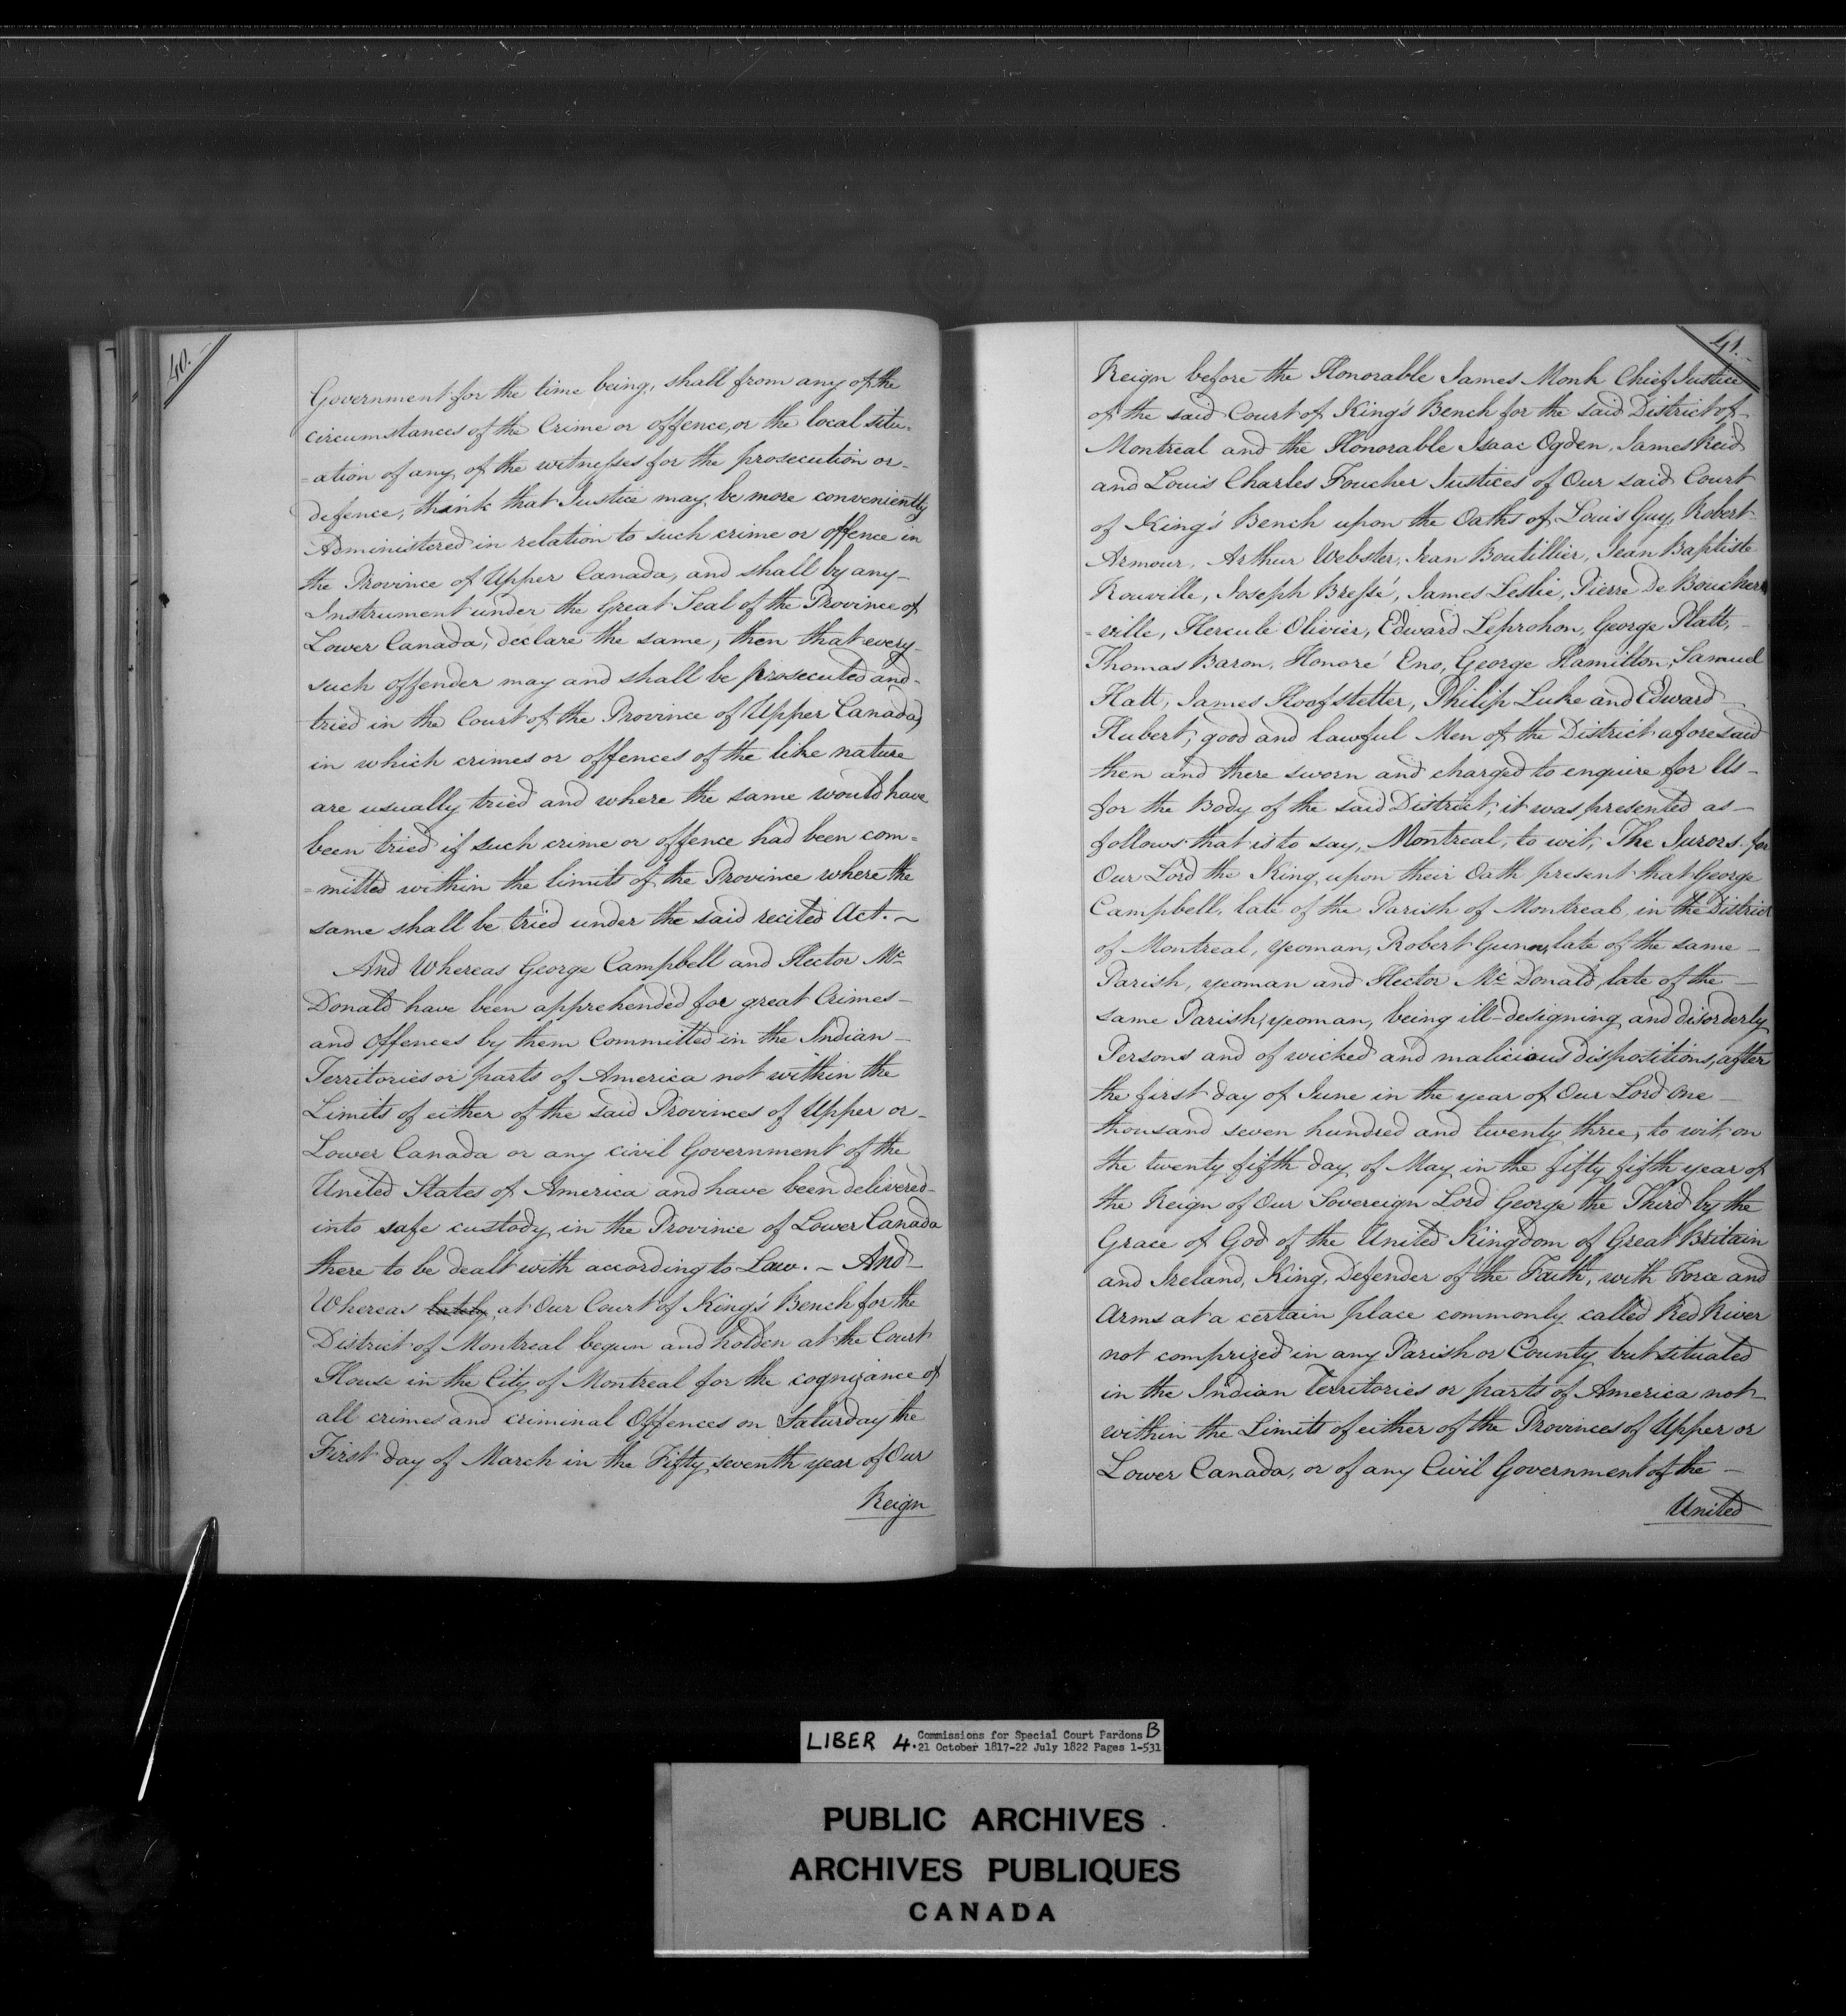 40.
Government for the time being, shall from any of the
circumstances of the Crime or offence, or the local situ=
=ation of any, of the witnesses for the prosecution or-
defence, think that Justice may, be more conveniently
Administered in relation to such crime or offence in
the Province of Upper Canada, and shall by any-
Instrument under the Great Seal of the Province of
Lower Canada, declare the same, then that every-
such offender may and shall be prosecuted and-
tried in the Court of the Province of Upper Canada,
in which crimes or offences of the like nature
are usually tried and where the same would have
been tried if such crime or offence had been com=
=mitted within the limits of the Province where the
same shall be tried under the said recited Act. ~
And Whereas George Campbell and Hector Mc
Donald have been apprehended for great Crimes-
and Offences by them Committed in the Indian-
Territories or parts of America not within the
Limits of either of the said Provinces of Upper or-
Lower Canada or any civil Government of the
United States of America and have been delivered-
into safe custody, in the Province of Lower Canada
there to be dealt with according to Law. ~ And-
Whereas lately, at Our Court of King's Bench for the
District of Montreal begun and holden at the Court
House in the City of Montreal for the cognizance of
all crimes and criminal Offences on Saturday the
First day of March in the Fifty seventh year of Our
Reign
41.
Reign before the Honorable James Monk Chief Justice
of the said Court of King's Bench for the said District of-
Montreal and the Honorable Isaac Ogden, James Reid
and Louis Charles Foucher Justices of Our said Court
of King's Bench upon the Oaths of Louis Guy, Robert-
Armour, Arthur Webster, Jean Boutillier, Jean Baptiste
Rouville, Joseph Bressé, James Leslie, Pierre De Boucher
=ville, Hercule Olivier, Edward Leprohon, George Platt,-
Thomas Baron, Honoré Eno, George Hamilton, Samuel
Hatt, James Hoofstetter, Philip Luke and Edward-
Hubert, good and lawful Men of the District aforesaid
then and there sworn and charged to enquire for Us-
for the Body of the said District, it was presented as-
follows that is to say, Montreal, to wit, The Jurors for
Our Lord the King, upon their Oath present that George
Campbell, late of the Parish of Montreal, in the District
of Montreal, yeoman, Robert Gunn, late of the same-
Parish, yeoman and Hector Mc Donald, late of the-
same Parish, yeoman, being ill-designing and disorderly
Persons and of wicked and malicious dispositions, after
the first day of June in the year of Our Lord One-
thousand seven hundred and twenty three, to wit, on
the twenty fifth day of May in the fifty fifth year of
the Reign of Our Sovereign Lord George the Third by the
Grace of God of the United Kingdom of Great Britain
and Ireland, King, Defender of the Faith, with Force and
Arms at a certain place commonly called Red River
not comprized in any Parish or County but situated
in the Indian Territories or parts of America not-
within the Limits of either of the Provinces of Upper or
Lower Canada, or of any Civil Government of the-
United
LIBER 4. Commissions for Special Court Pardons B
21 October 1817-22 July 1822 Pages 1-531
PUBLIC ARCHIVES
ARCHIVES PUBLIQUES
CANADA